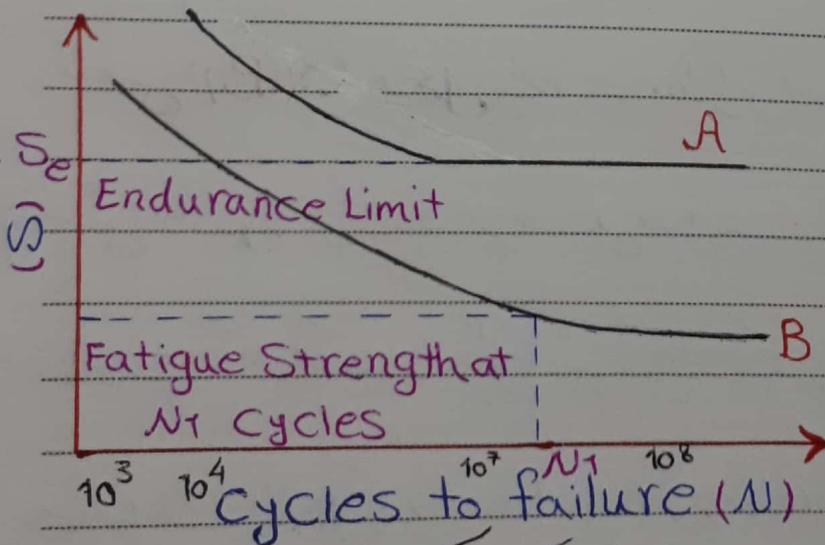 A
Se
Endurance Limit
(S)
B
Fatigue Strength at
N1 Cycles
10³ 10⁴ 10⁷ N1 10⁸
Cycles to failure (N)